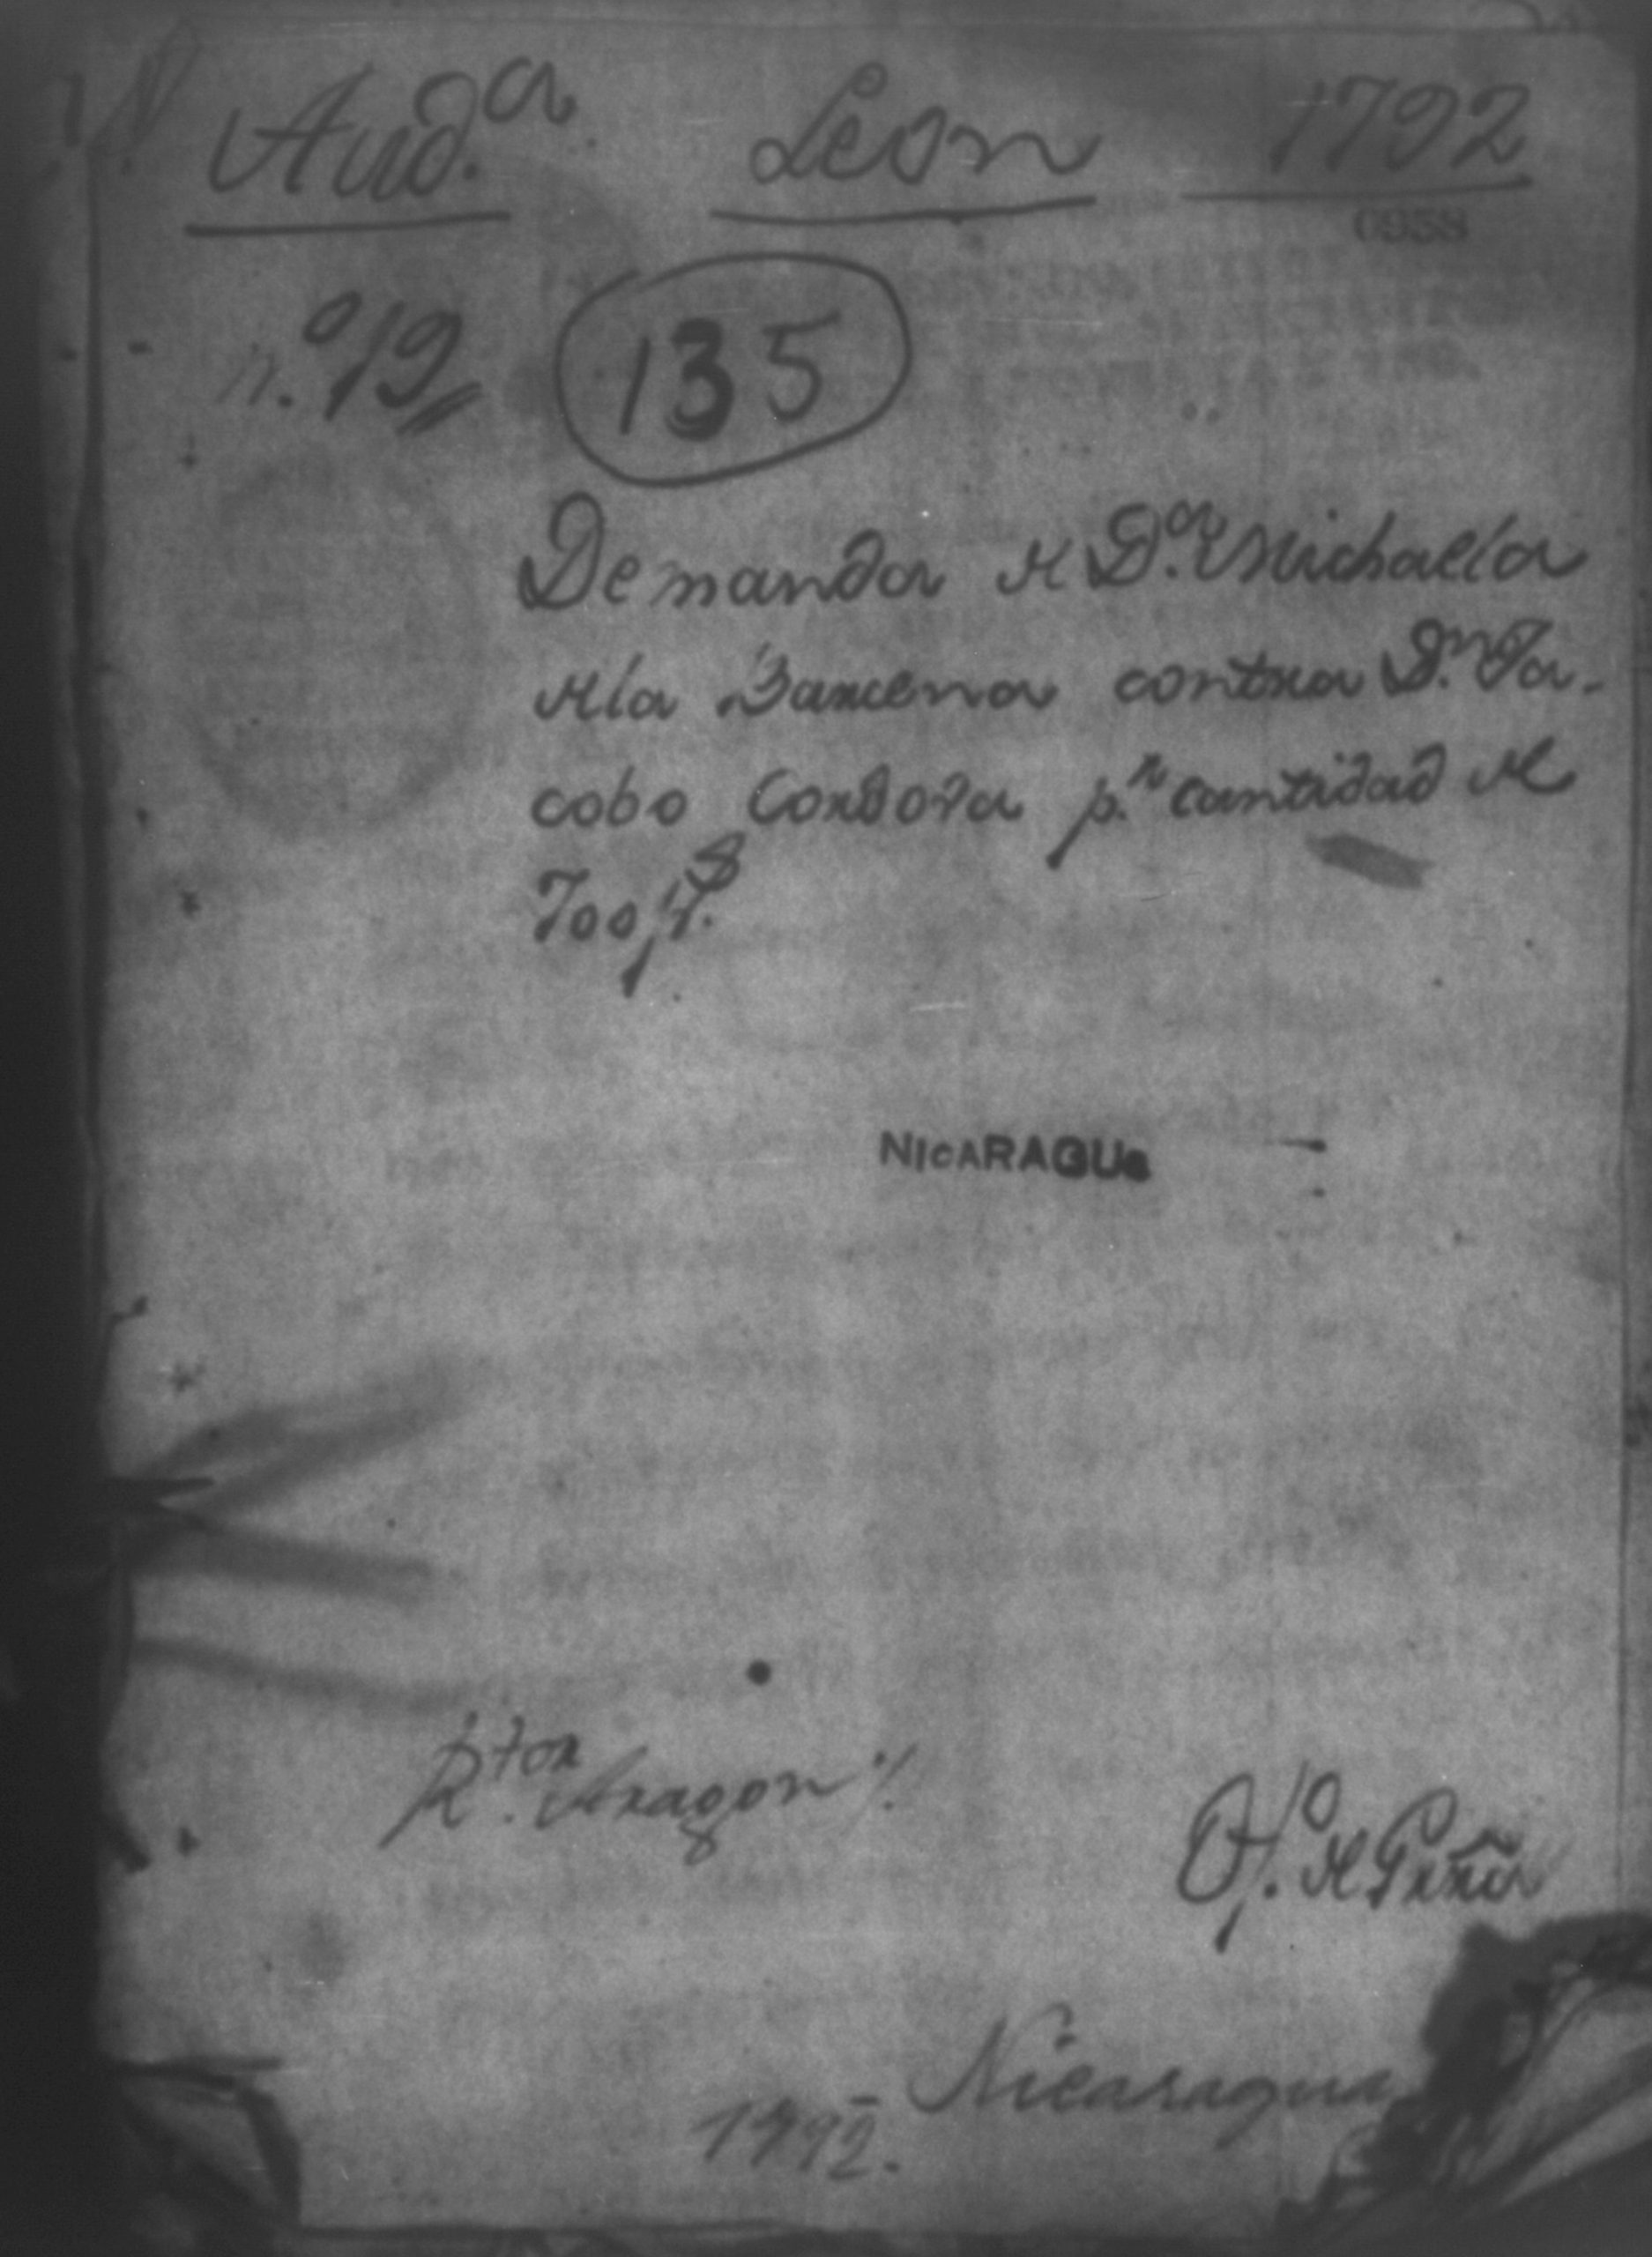 Aud.ª Leon 1792
0958
n.º 12
135
Demanda de D.ª Michaela
dela Barcena contra D.n Ja-
cobo Cordova p.r cantidad de
700 p.s
NICARAGUa
R.tor Aragon
Of.o de Peña
Nicaragua
1792.